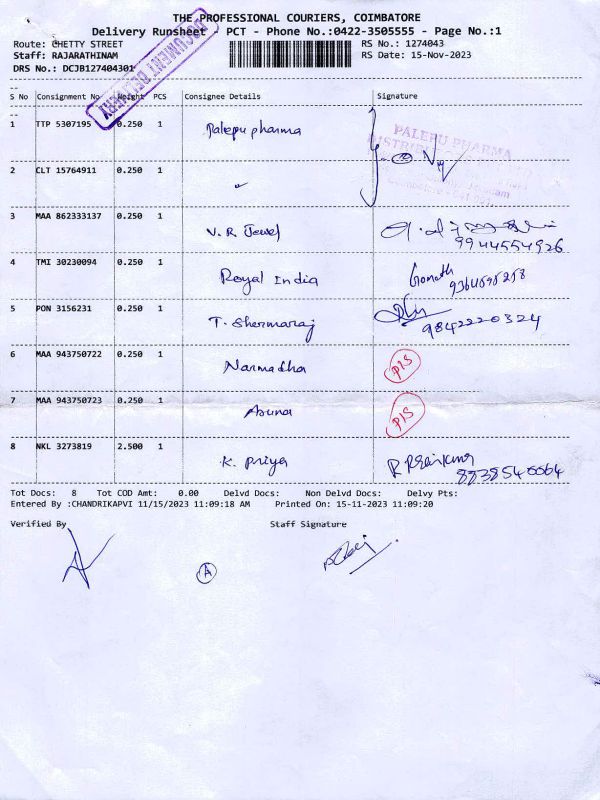 THE PROFESSIONAL COURIERS, COIMBATORE
Delivery Runsheet - PCT - Phone No.:0422-3505555 - Page No.:1
Route: CHETTY STREET RS No.: 1274043
Staff: RAJARATHINAM RS Date: 15-Nov-2023
DRS No.: DCJB127404301
DOCUMENT DELIVERY
S No Consignment No Weight PCS Consignee Details Signature
1 TTP 5307195 0.250 1 Palepu pharma
PALEPU PHARMA
2 CLT 15764911 0.250 1 "
3 MAA 862333137 0.250 1 V. R. Jewel
9944554926
4 TMI 30230094 0.250 1 Royal India Gomath
9364595258
5 PON 3156231 0.250 1 T. Shermaraj
9842220324
6 MAA 943750722 0.250 1 Narmadha P/S
7 MAA 943750723 0.250 1 Aruna P/S
8 NKL 3273819 2.500 1 K. Priya
8838540064
Tot Docs: 8 Tot COD Amt: 0.00 Delvd Docs: Non Delvd Docs: Delvy Pts:
Entered By :CHANDRIKAPVI 11/15/2023 11:09:18 AM Printed On: 15-11-2023 11:09:20
Verified By Staff Signature
A